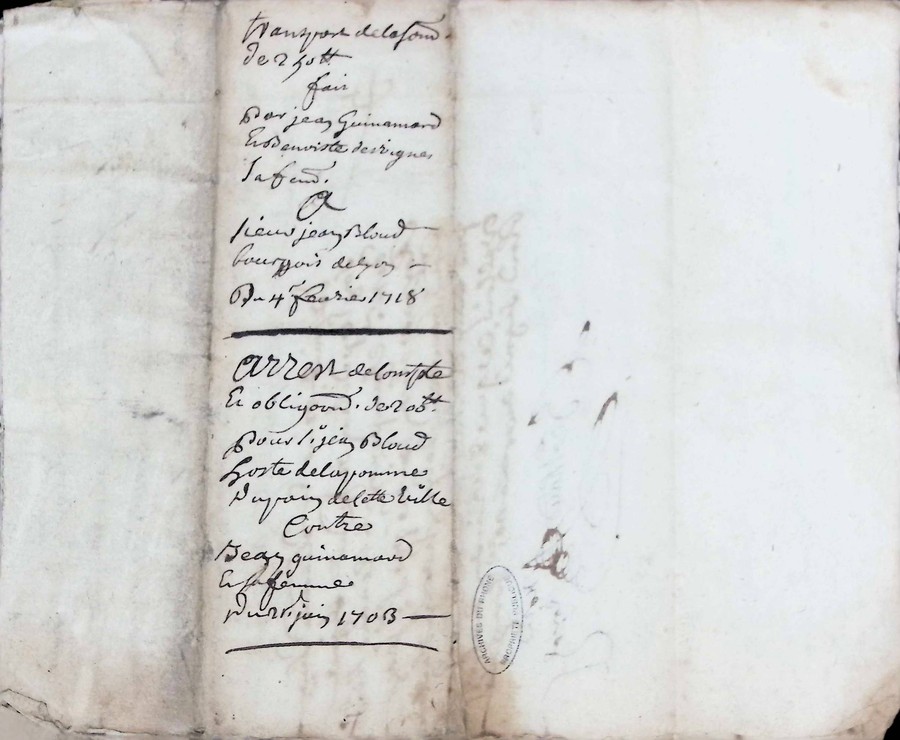 transport de la som̄e
de 250 tt
fait
Par jean Guinamard
Et Benoiste des vignes
sa fem̄e.
A
sieur jean Bloud
bourgois de lyon
Du 4e feurier 1718
Arrest de Compte
Et obligaōn. de 206 tt
Pour sr jean Bloud
hoste de la pomme
Du pain de Cette Ville
Contre
Jean guinamard
Et sa femme
Du juin 1703
ARCHIVES DU RHÔNE
PROPRIÉTÉ PUBLIQUE